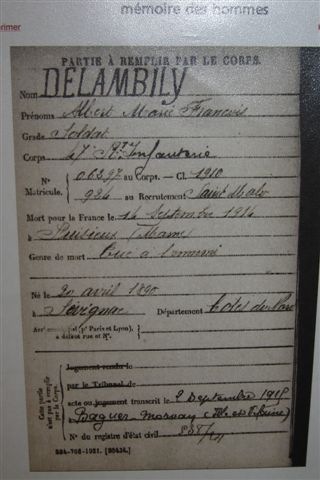 mémoire des hommes
PARTIE À REMPLIR PAR LE CORPS.
Nom DELAMBILY
Prénoms Albert Marie François
Grade Soldat
Corps 47e Rt Infanterie
N° 06397 au Corps. — Cl. 1910
Matricule. 924 au Recrutement Saint Malo
Mort pour la France le 14 Septembre 1914
à Puisieux (Marne)
Genre de mort Tué à l'ennemi
Né le 20 avril 1890
à Sévignac Département Côtes du Nord
Arrt municipal (pr Paris et Lyon),
à défaut rue et N°.
Cette partie n'est pas à remplir par le Corps.
Jugement rendu le
par le Tribunal de
acte ou jugement transcrit le 2 Septembre 1915
Baguer-Morvan (Ille et Vilaine)
N° du registre d'état civil
534-708-1921. [26434.]